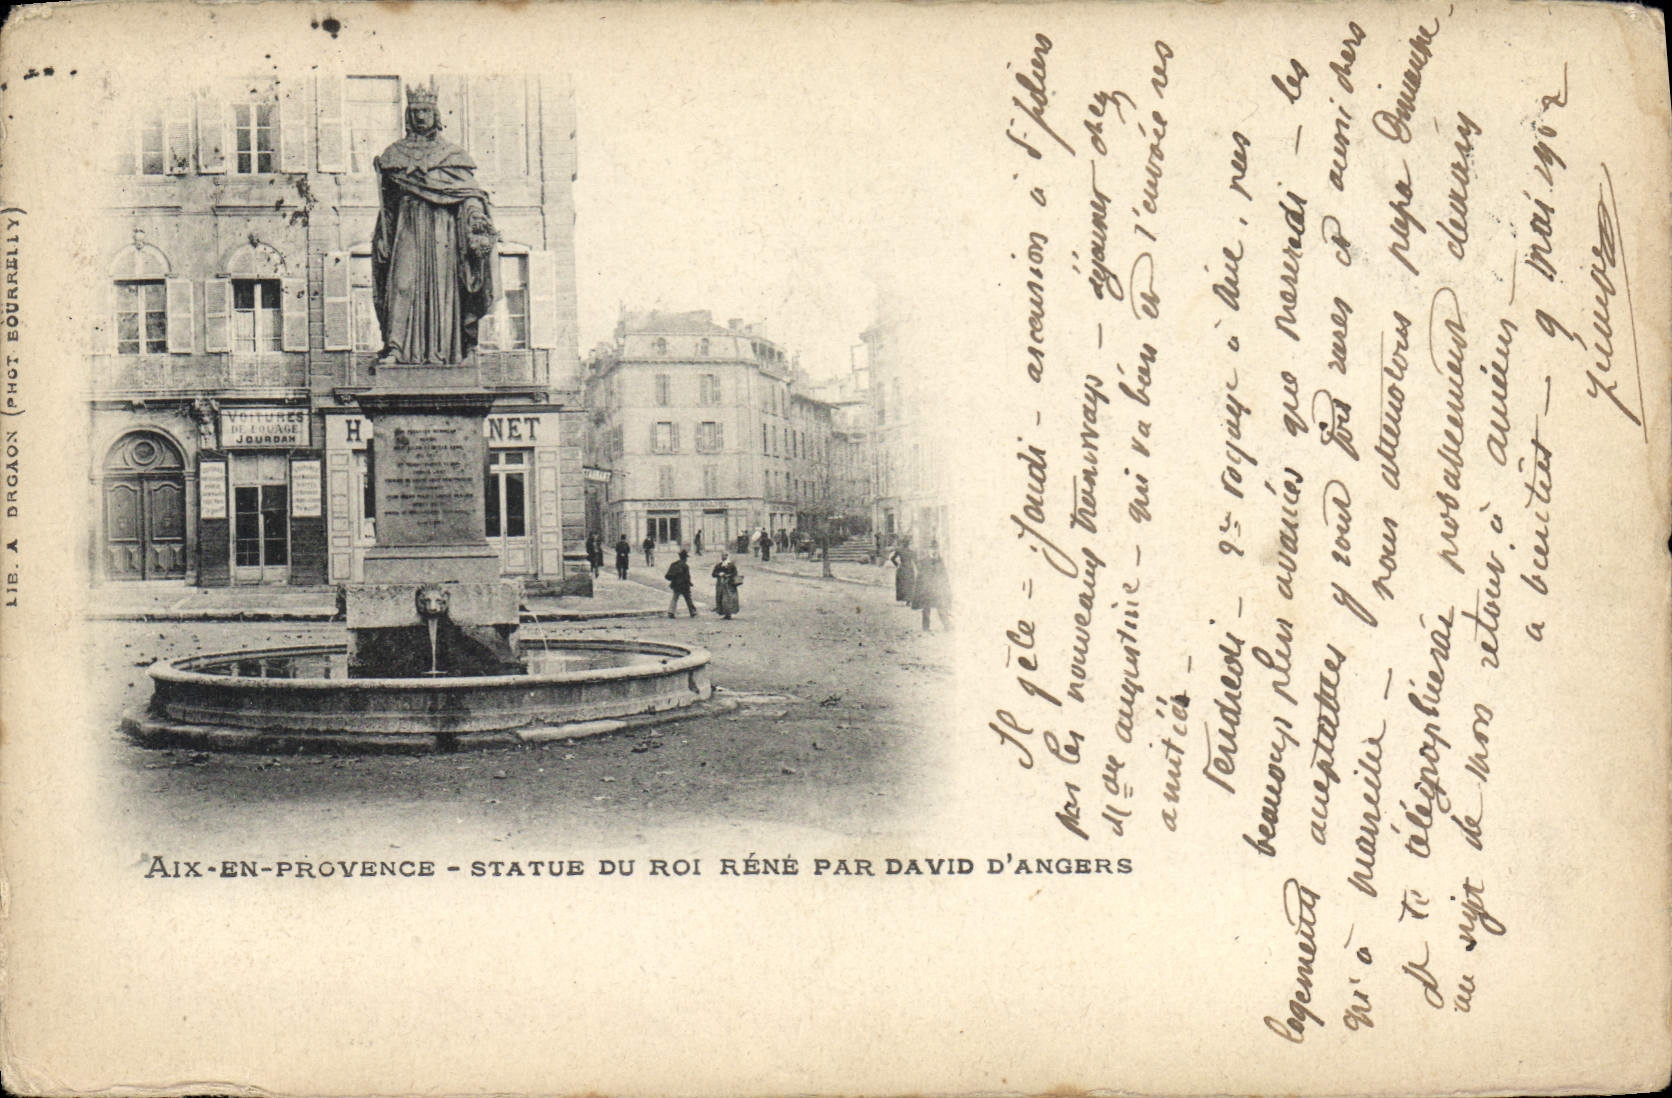 LIB. A DRGAON (PHOT BOURRELLY)
VOITURES
DE LOUAGE
JOURDAN
H
NET
AIX-EN-PROVENCE - STATUE DU ROI RÉNÉ PAR DAVID D'ANGERS
Il gèle = Jeudi - ascension à St
par les nouveaux tramways - déjeuner chez
Me augustine - qui va bien et t'envoie ses
amitiés -
Vendredi - 2e voyage à Aix, pas
beaucoup plus avancés que mercredi - les
logements acceptables y sont fort rares et aussi chers
qu'à marseille - nous attendrons papa
et te télégraphierai probablement demain
au sujet de mon retour à amiens -
a bientôt - 9 mai 1902